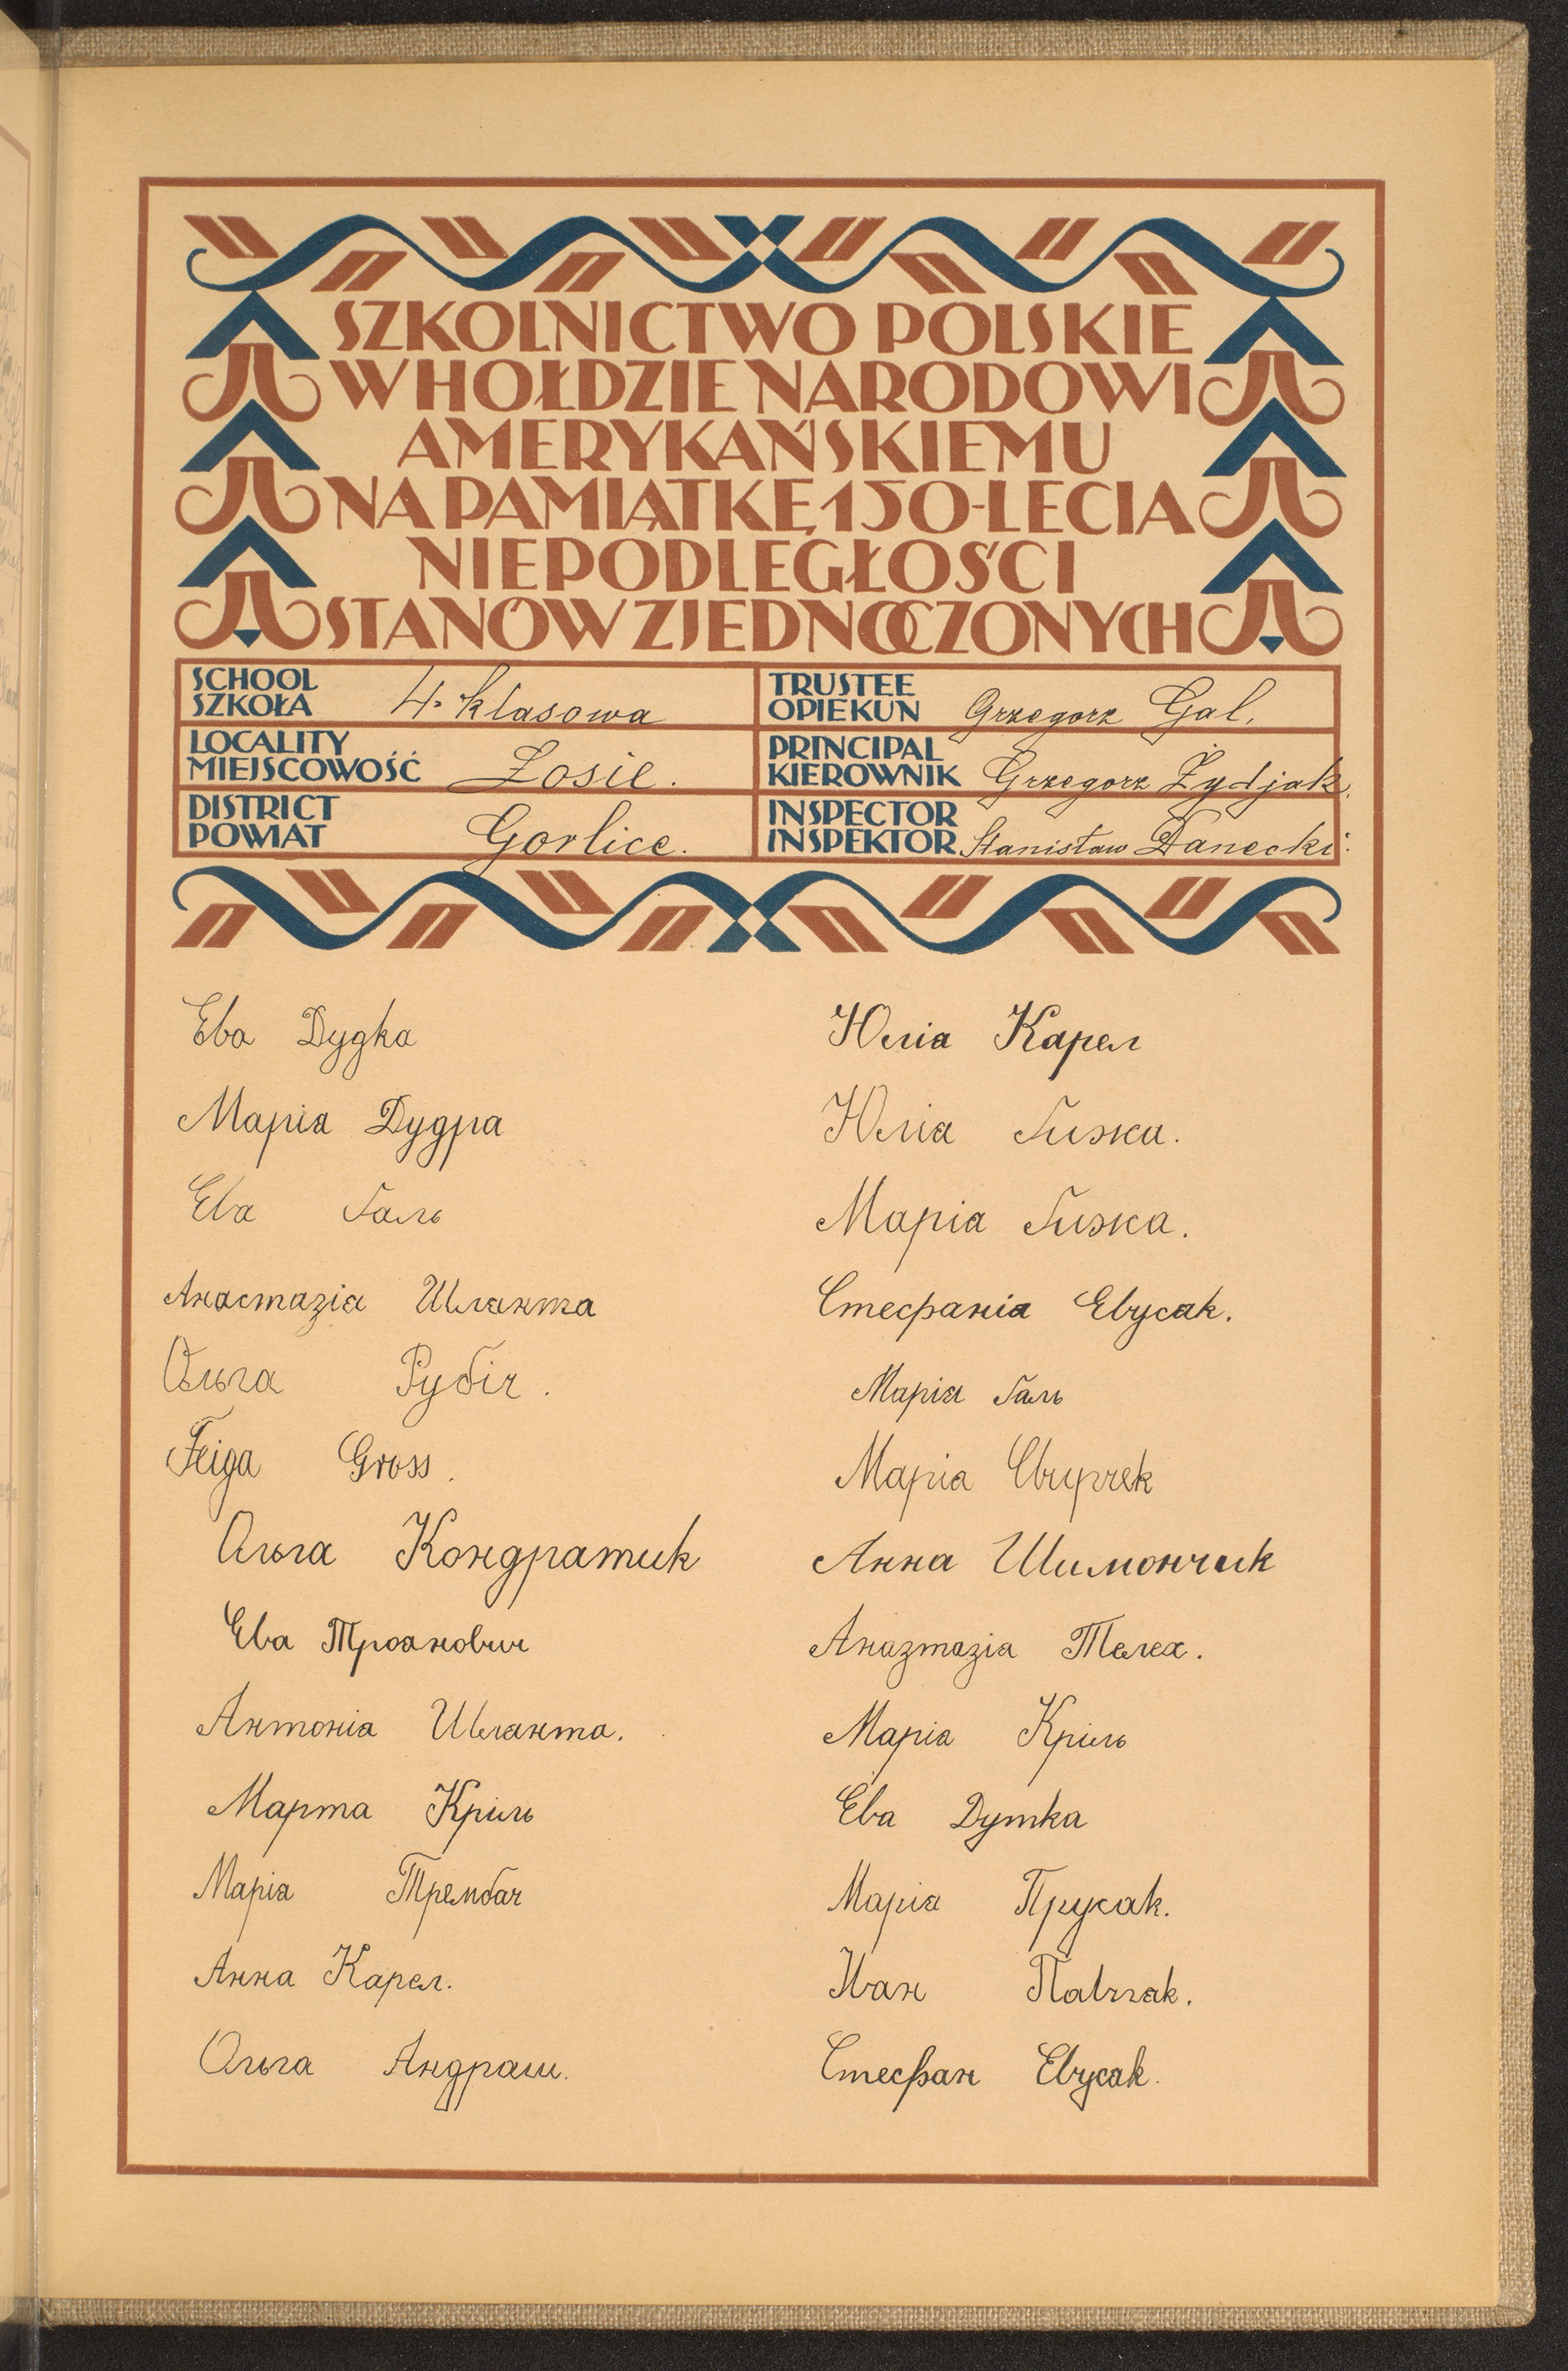 SZKOLNICTWO POLSKIE
W HOŁDZIE NARODOWI
AMERYKAŃSKIEMU
NA PAMIĄTKĘ 150-LECIA
NIEPODLEGŁOŚCI
STANÓW ZJEDNOCZONYCH
SCHOOL
SZKOŁA 4. klasowa
TRUSTEE
OPIEKUN Grzegorz Gal.
LOCALITY
MIEJSCOWOŚĆ Łosie.
PRINCIPAL
KIEROWNIK Grzegorz Żydjak.
DISTRICT
POWIAT Gorlice.
INSPECTOR
INSPEKTOR Stanisław Danecki.
Ева Дудка
Марія Дудра
Ева Галь
Анастазія Шлянта
Ольга Рубіч.
Feiga Gross.
Ольга Кондратик
Ева Троянович
Антонія Шлянта.
Марта Кріль
Марія Трембач
Анна Карел.
Ольга Андраш.
Юлія Карел
Юлія Гижа.
Марія Гижа.
Стефанія Евусак.
Марія Галь
Марія
Анна Шимончик
Аназтазія Телех.
Марія Кріль
Ева Дутка
Марія Прусак.
Іван Павчак.
Стефан Евусак.